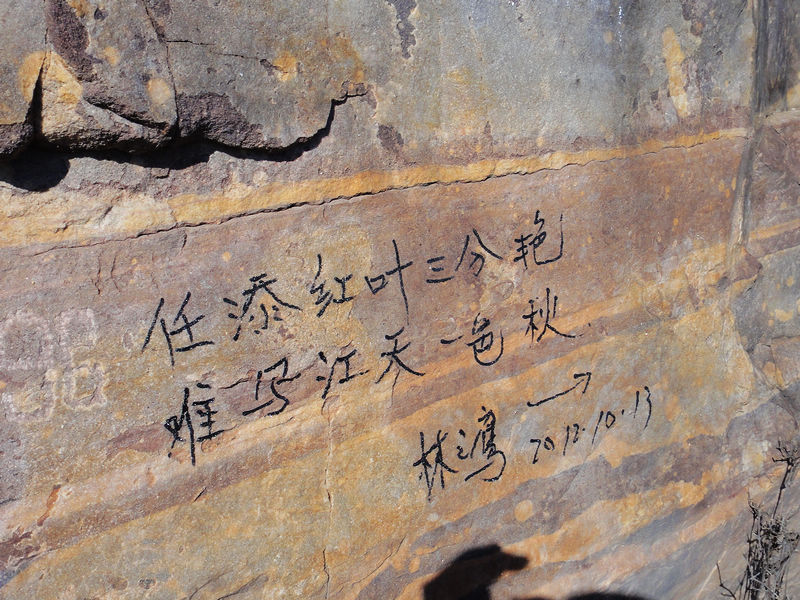 任添红叶三分艳
难写江天一色秋
林之鹰 → 2012.10.13